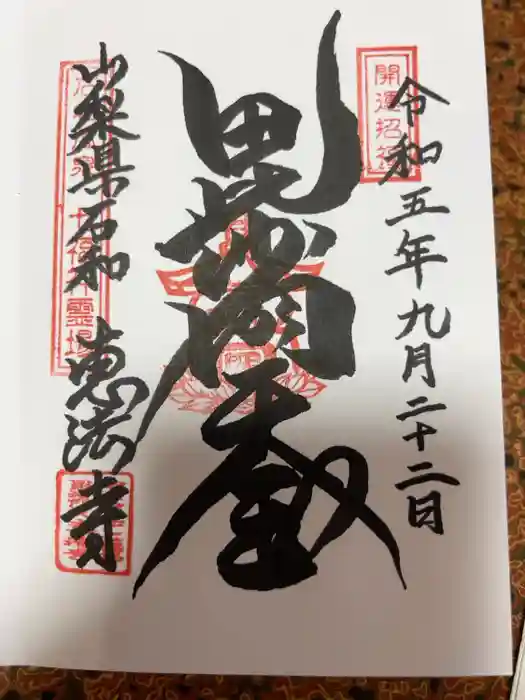 開運招福
令和五年九月二十二日
毘沙門天
山梨県石和 恵法寺
霊場